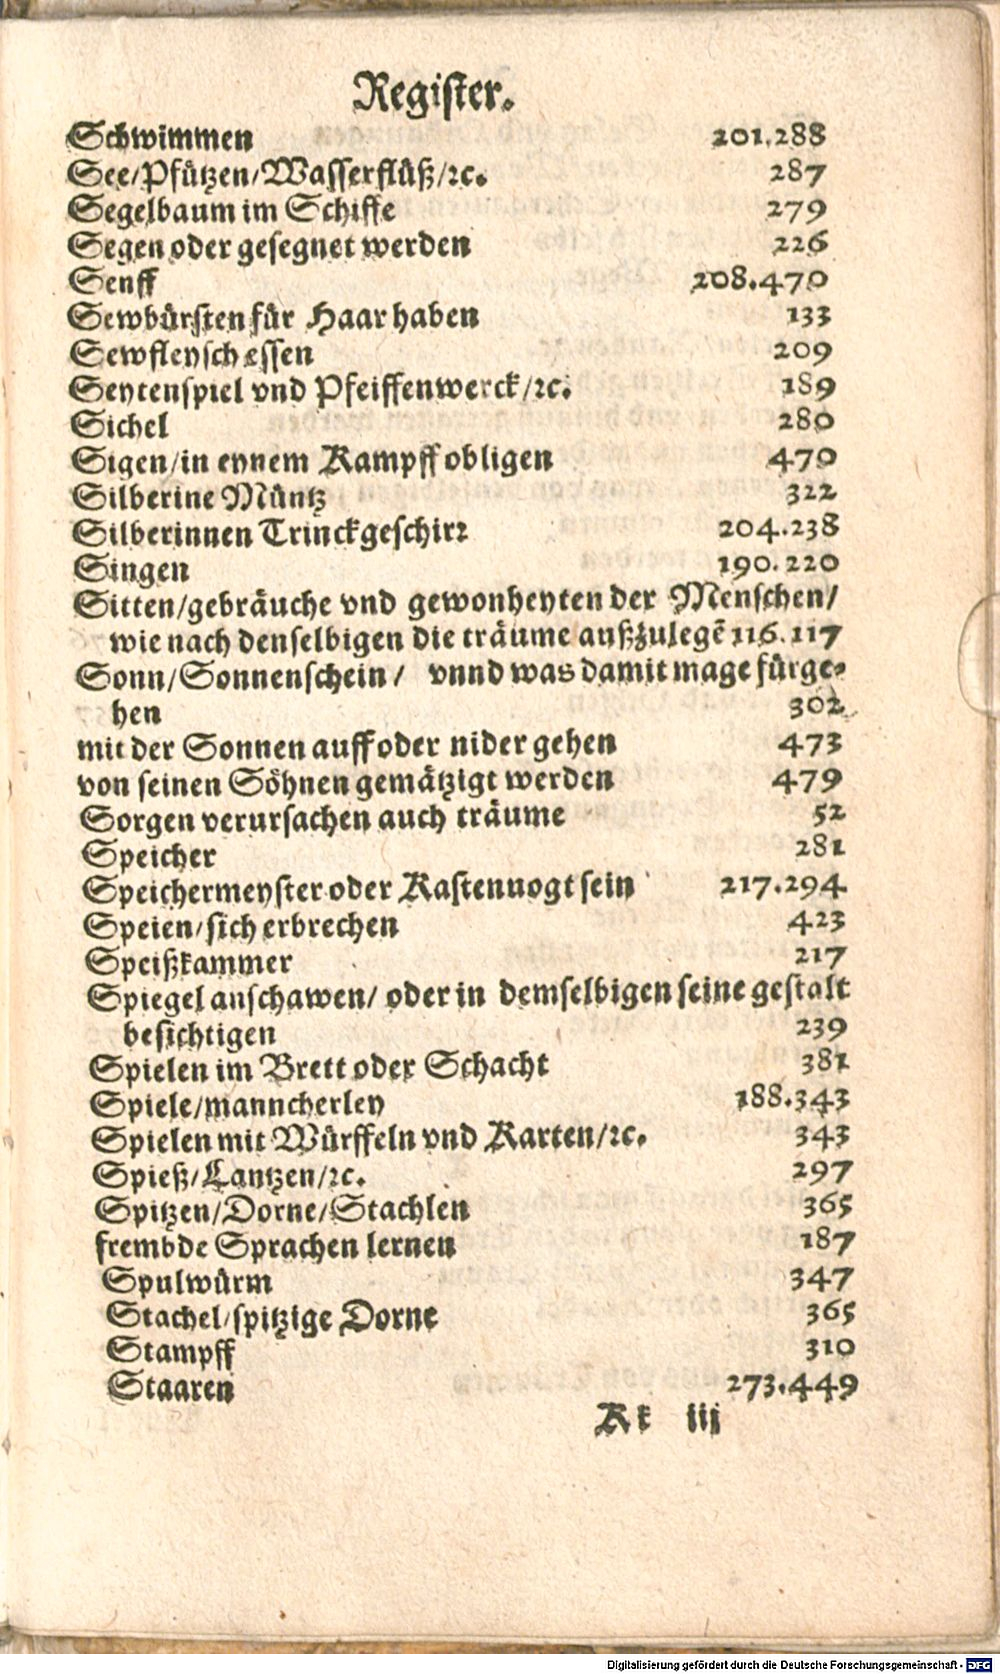 Register.
Schwimmen 201.288
See/Pfützen/Wasserflüß/ꝛc. 287
Segelbaum im Schiffe 279
Segen oder gesegnet werden 226
Senff 208.470
Sewbürsten für Haar haben 133
Sewfleysch essen 209
Seytenspiel vnd Pfeiffenwerck/ꝛc. 189
Sichel 280
Sigen/in eynem Kampff obligen 470
Silberine Müntz 322
Silberinnen Trinckgeschirꝛ 204.238
Singen 190.220
Sitten/gebräuche vnd gewonheyten der Menschen/
wie nach denselbigen die träume außzulegẽ 116.117
Sonn/Sonnenschein/ vnnd was damit mage fürge-
hen 302
mit der Sonnen auff oder nider gehen 473
von seinen Söhnen gemätzigt werden 479
Sorgen verursachen auch träume 52
Speicher 281
Speichermeyster oder Kastenuogt sein 217.294
Speien/sich erbrechen 423
Speißkammer 217
Spiegel anschawen/ oder in demselbigen seine gestalt
besichtigen 239
Spielen im Brett oder Schacht 381
Spiele/manncherley 188.343
Spielen mit Würffeln vnd Karten/ꝛc. 343
Spieß/Lantzen/ꝛc. 297
Spitzen/Dorne/Stachlen 365
frembde Sprachen lernen 187
Spulwürm 347
Stachel/spitzige Dorne 365
Stampff 310
Staaren 273.449
Kk iij
Digitalisierung gefördert durch die Deutsche Forschungsgemeinschaft - DFG